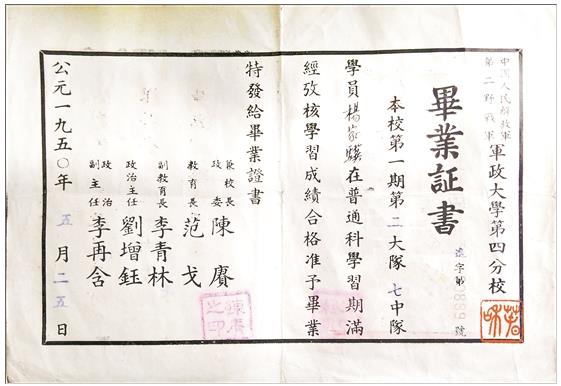 中國人民解放軍
第二野戰軍
軍政大學第四分校
畢業証書
字第 號
本校第一期第二大隊七中隊
學員楊家騤在普通科學習期滿
經攷核學習成績合格准予畢業
特發給畢業證書
兼校長
政委
陳賡
教育長 范戈
副教育長 李青林
政治主任 劉增鈺
政治
副主任
李再含
公元一九五〇年五月二五日
陳賡
之印